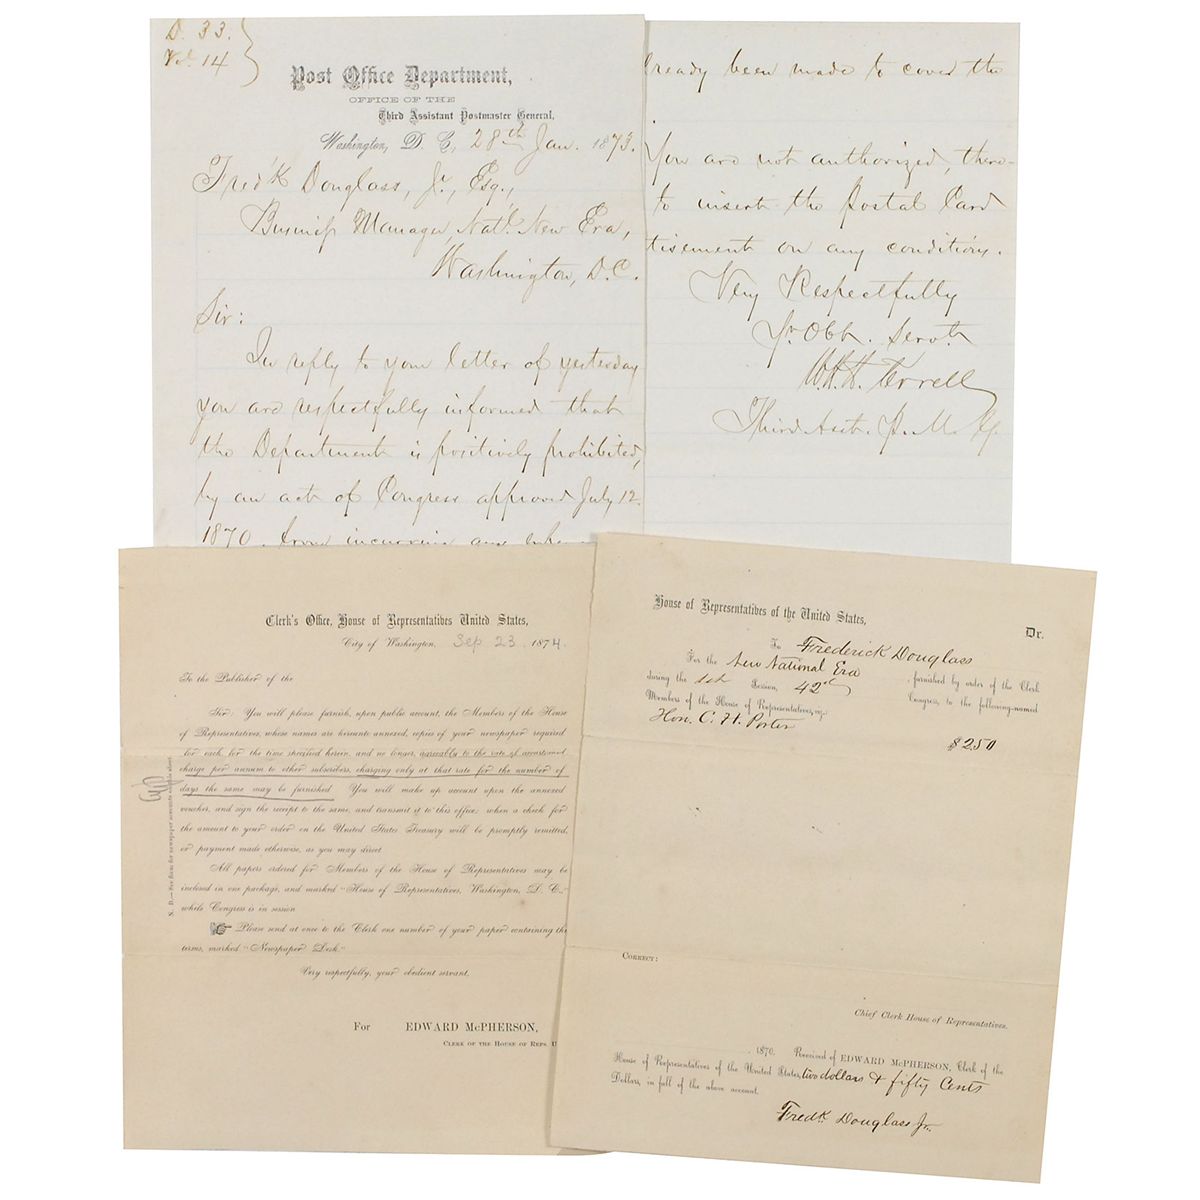 D. 33.
Vol. 14
Post Office Department,
OFFICE OF THE
Third Assistant Postmaster General,
Washington, D. C., 28th Jan. 1873.
Fred'k Douglass, Jr., Esq.,
Business Manager, Nat'l. New Era,
Washington, D.C.
Sir:
In reply to your letter of yesterday
you are respectfully informed that
the Department is positively prohibited,
by an act of Congress approved July 12
1870, from incurring any
lready been made to cover the
You are not authorized, there-
to insert the Postal Card
tisement on any conditions.
Very Respectfully
Yr. Obt. Servt.
W.H.H. Terrell
Third Asst. P. M. G.
Clerk's Office, House of Representatives United States,
City of Washington, Sep 23, 1874.
To the Publisher of the
Sir: You will please furnish, upon public account, the Members of the House
of Representatives, whose names are hereunto annexed, copies of your newspaper required
for each, for the time specified herein, and no longer, agreeably to the rate of accustomed
charge per annum to other subscribers, charging only at that rate for the number of
days the same may be furnished. You will make up account upon the annexed
voucher, and sign the receipt to the same, and transmit it to this office; when a check for
the amount to your order on the United States Treasury will be promptly remitted,
or payment made otherwise, as you may direct.
All papers ordered for Members of the House of Representatives may be
inclosed in one package, and marked "House of Representatives, Washington, D. C."
while Congress is in session
Please send at once to the Clerk one number of your paper containing the
terms, marked "Newspaper Desk."
Very respectfully, your obedient servant,
For EDWARD McPHERSON,
CLERK OF THE HOUSE OF REPS. U
N. B.—See form for newspaper accounts
House of Representatives of the United States,
Dr.
To Frederick Douglass
For the New National Era, furnished by order of the Clerk
during the 1st Session, 42d Congress, to the following-named
Members of the House of Representatives, viz:
Hon. C. H. Porter
$2.50
CORRECT:
Chief Clerk House of Representatives.
, 1870. Received of EDWARD McPHERSON, Clerk of the
House of Representatives of the United States, two dollars & fifty Cents
Dollars, in full of the above account.
Fredk. Douglass Jr.